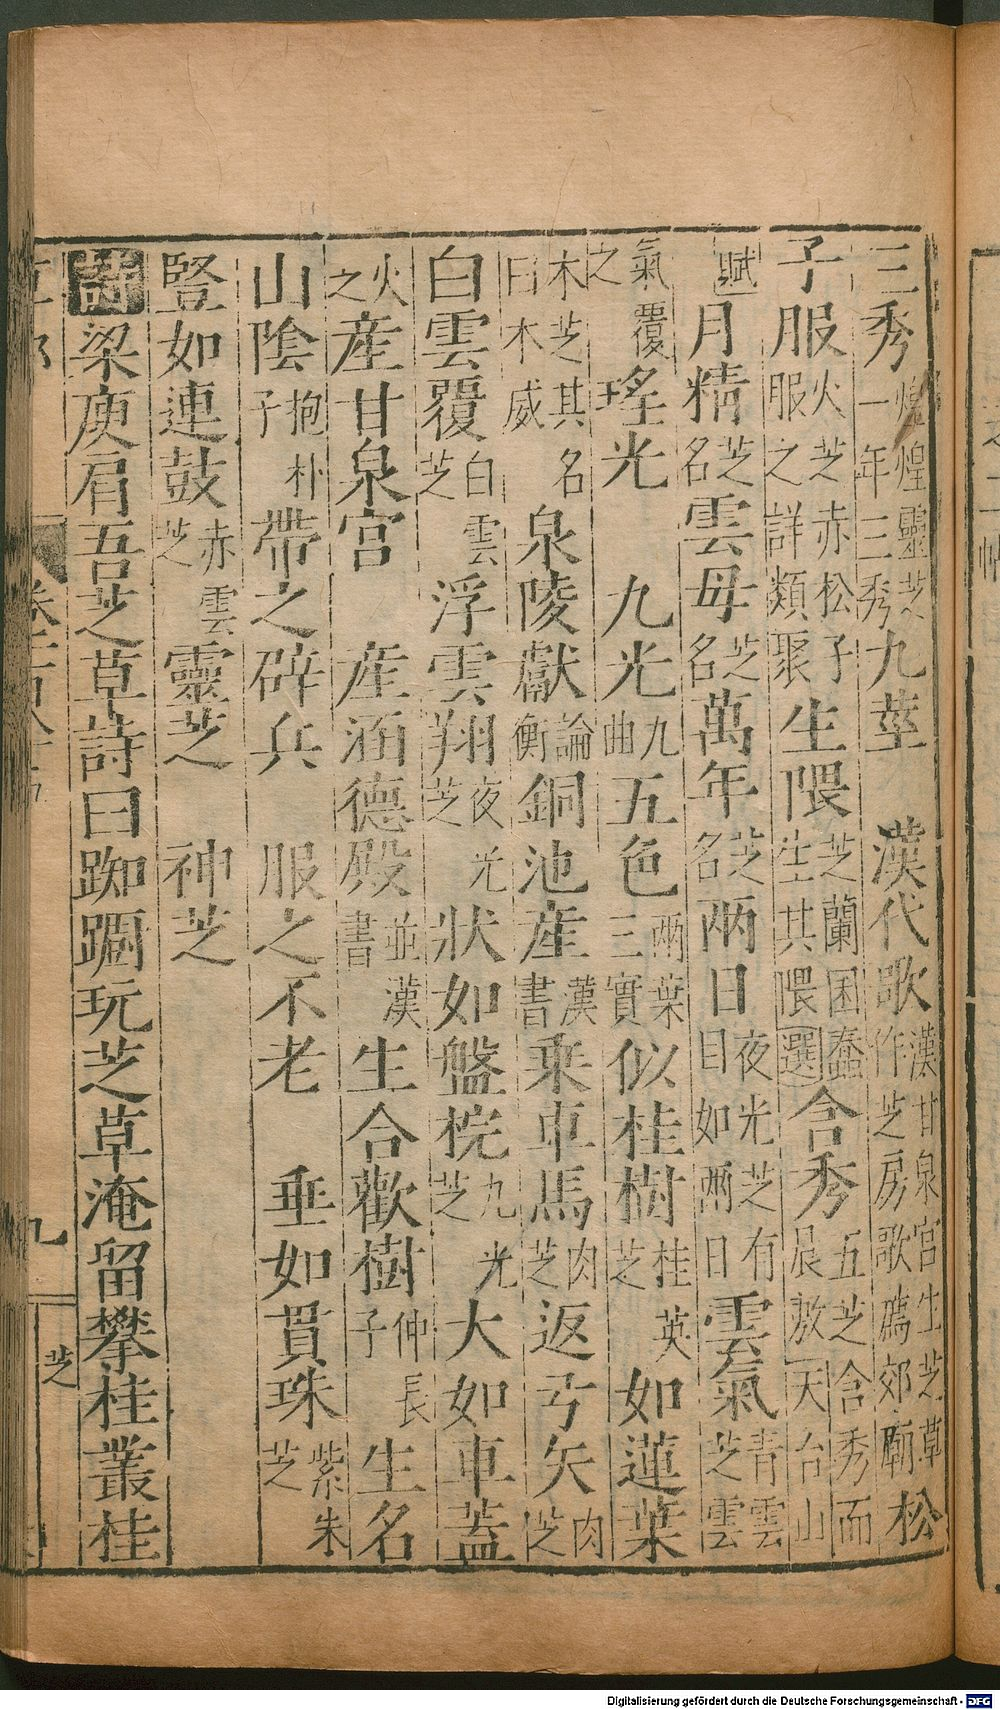 三秀煌煌靈芝一年三秀九莖 漢代歌漢甘泉宮生芝草作芝房歌薦郊廟松
子服火芝赤松子服之詳類聚生隈芝蘭囷蠢生其隈選含秀五芝含秀而晨敷天台山
賦月精芝名雲母芝名萬年芝名兩日夜光芝有目如兩日雲氣青雲芝雲
氣覆之瑤光 九光九曲五色兩葉三實似桂樹桂英芝如蓮葉
木芝其名曰木威 泉陵獻論衡銅池產漢書乘車馬肉芝返弓矢肉芝
白雲覆白雲芝浮雲翔夜光芝狀如盤椀九光芝大如車蓋
火之產甘泉宮 產涵德殿並漢書生合歡樹仲長子生名
山陰抱朴子帶之辟兵 服之不老 垂如貫珠紫朱芝
豎如連鼓赤雲芝靈芝 神芝
詩梁庾肩吾芝草詩曰踟躕玩芝草淹留攀桂叢桂
九
芝
Digitalisierung gefördert durch die Deutsche Forschungsgemeinschaft - DFG